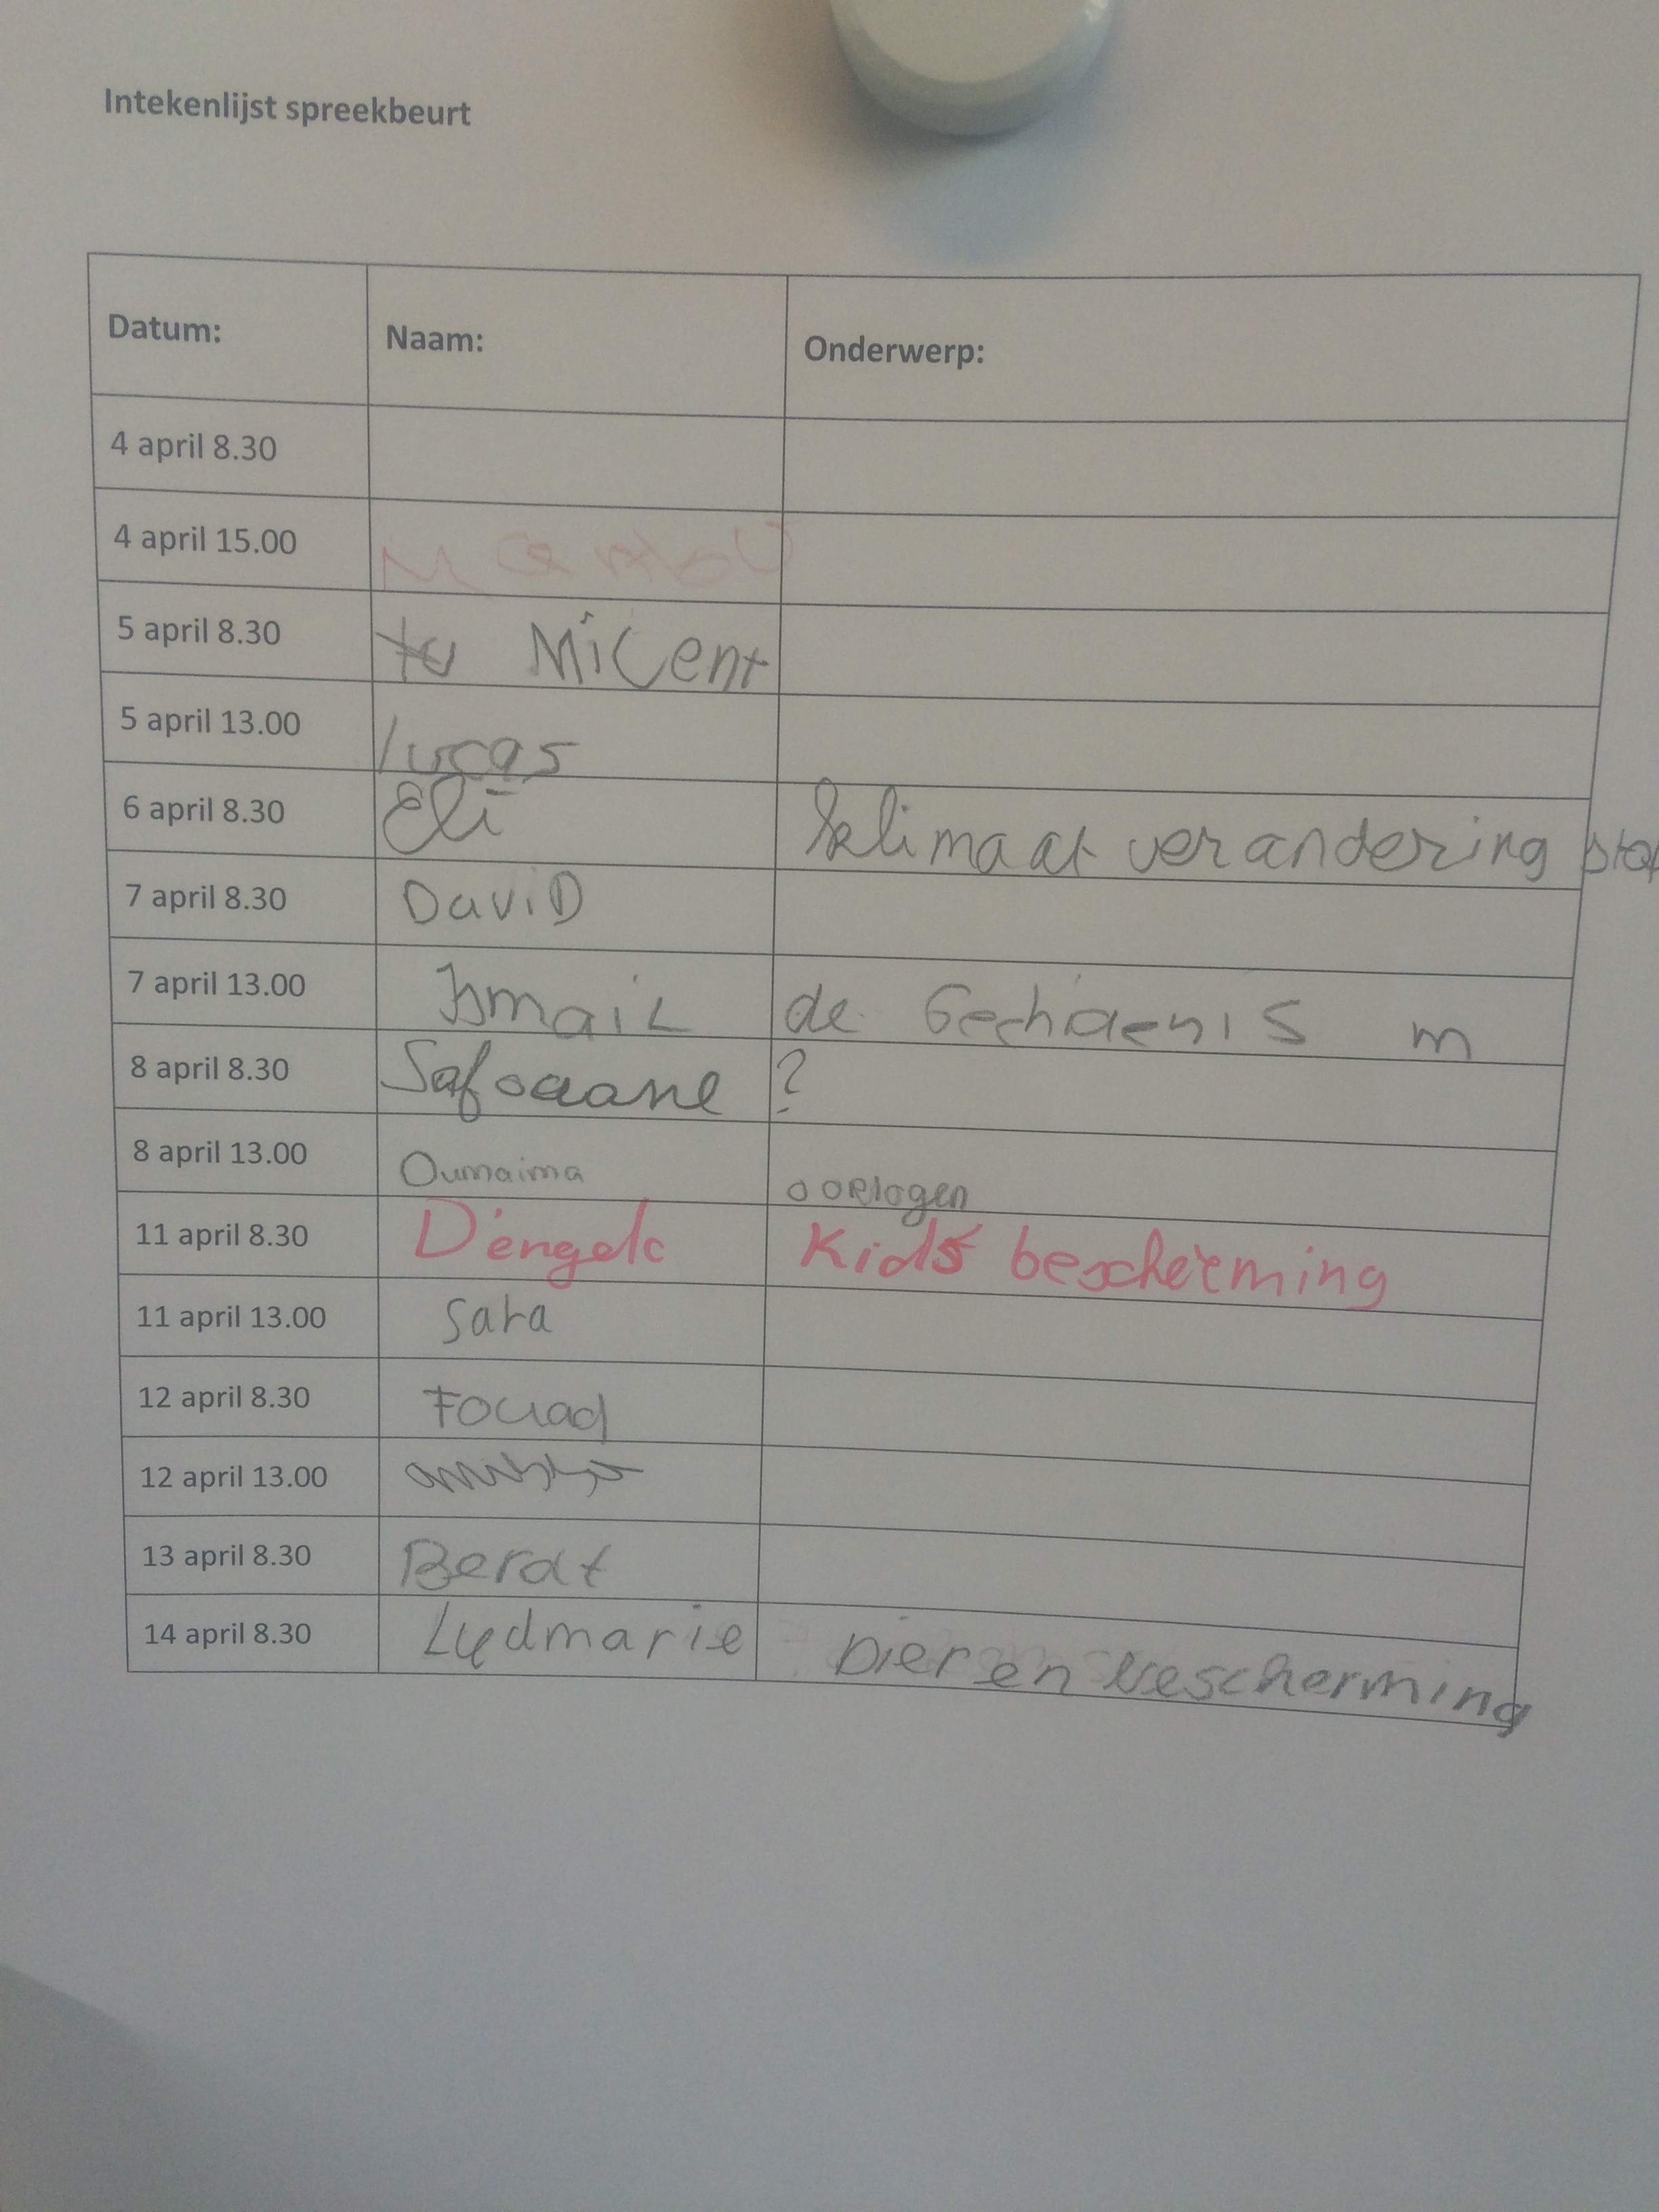 Intekenlijst spreekbeurt
Datum: Naam: Onderwerp:
4 april 8.30
4 april 15.00
5 april 8.30 Micent
5 april 13.00 lucas
6 april 8.30 Eli klimaat verandering
7 april 8.30 DaviD
7 april 13.00 Ismail de m
8 april 8.30 Safouane ?
8 april 13.00 Oumaima oorlogen
11 april 8.30 Kids bescherming
11 april 13.00 Sara
12 april 8.30 Fouad
12 april 13.00
13 april 8.30 Berat
14 april 8.30 Lydmarie Dieren bescherming